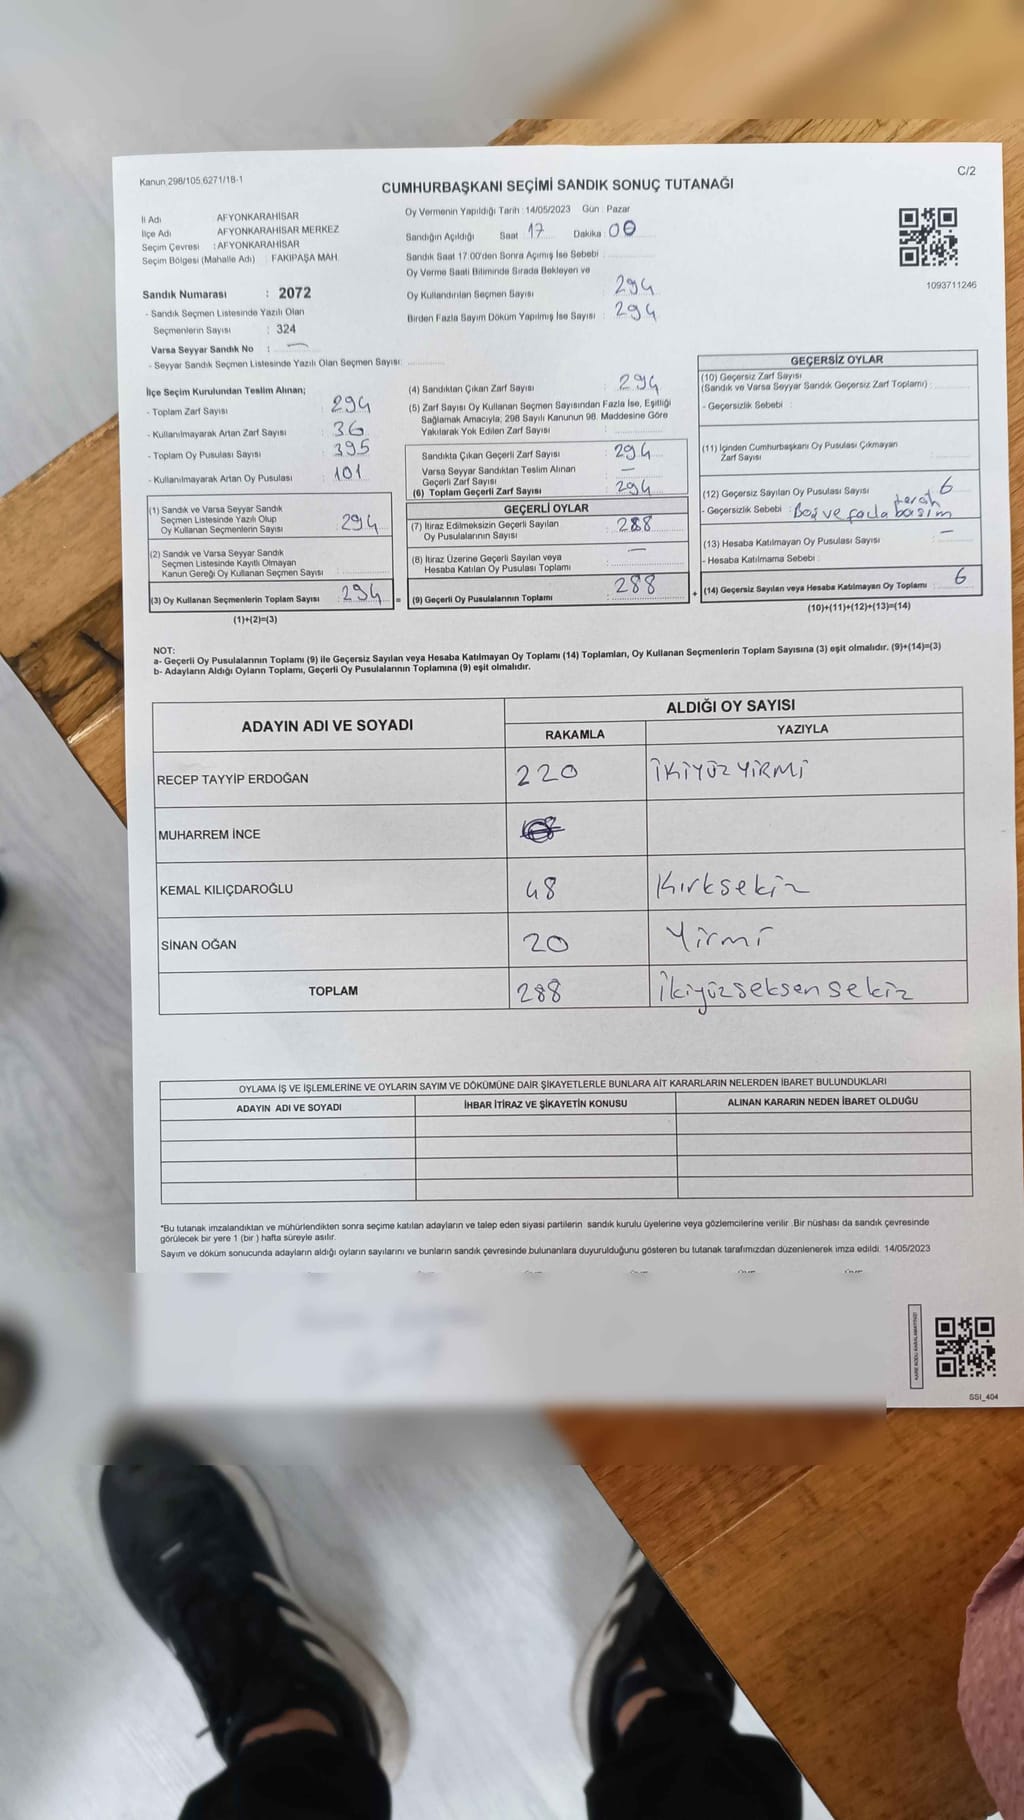 Kanun 298/105,6271/18-1
C/2
CUMHURBAŞKANI SEÇİMİ SANDIK SONUÇ TUTANAĞI
İl Adı AFYONKARAHİSAR
İlçe Adı AFYONKARAHİSAR MERKEZ
Seçim Çevresi : AFYONKARAHİSAR
Seçim Bölgesi (Mahalle Adı) : FAKIPAŞA MAH.
Sandık Numarası : 2072
- Sandık Seçmen Listesinde Yazılı Olan
Seçmenlerin Sayısı : 324
Varsa Seyyar Sandık No : —
- Seyyar Sandık Seçmen Listesinde Yazılı Olan Seçmen Sayısı:
Oy Vermenin Yapıldığı Tarih : 14/05/2023 Gün : Pazar
Sandığın Açıldığı Saat : 17 Dakika : 00
Sandık Saat 17.00'den Sonra Açımış İse Sebebi :
Oy Verme Saati Bitiminde Sırada Bekleyen ve
Oy Kullandırılan Seçmen Sayısı : 294
Birden Fazla Sayım Döküm Yapılmış İse Sayısı : 294
1093711246
İlçe Seçim Kurulundan Teslim Alınan;
- Toplam Zarf Sayısı : 294
- Kullanılmayarak Artan Zarf Sayısı : 36
- Toplam Oy Pusulası Sayısı : 395
- Kullanılmayarak Artan Oy Pusulası : 101
(1) Sandık ve Varsa Seyyar Sandık
Seçmen Listesinde Yazılı Olup
Oy Kullanan Seçmenlerin Sayısı : 294
(2) Sandık ve Varsa Seyyar Sandık
Seçmen Listesinde Kayıtlı Olmayan
Kanun Gereği Oy Kullanan Seçmen Sayısı :
(3) Oy Kullanan Seçmenlerin Toplam Sayısı : 294 =
(1)+(2)=(3)
(4) Sandıktan Çıkan Zarf Sayısı : 294
(5) Zarf Sayısı Oy Kullanan Seçmen Sayısından Fazla İse, Eşitliği
Sağlamak Amacıyla; 298 Sayılı Kanunun 98. Maddesine Göre
Yakılarak Yok Edilen Zarf Sayısı :
Sandıkta Çıkan Geçerli Zarf Sayısı : 294
Varsa Seyyar Sandıktan Teslim Alınan
Geçerli Zarf Sayısı : —
(6) Toplam Geçerli Zarf Sayısı : 294
GEÇERLİ OYLAR
(7) İtiraz Edilmeksizin Geçerli Sayılan
Oy Pusulalarının Sayısı : 288
(8) İtiraz Üzerine Geçerli Sayılan veya
Hesaba Katılan Oy Pusulası Toplamı : —
(9) Geçerli Oy Pusulalarının Toplamı : 288 +
GEÇERSİZ OYLAR
(10) Geçersiz Zarf Sayısı
(Sandık ve Varsa Seyyar Sandık Geçersiz Zarf Toplamı) :
- Geçersizlik Sebebi :
(11) İçinden Cumhurbaşkanı Oy Pusulası Çıkmayan
Zarf Sayısı
(12) Geçersiz Sayılan Oy Pusulası Sayısı : 6
- Geçersizlik Sebebi : Boş ve fazla tercih basım
(13) Hesaba Katılmayan Oy Pusulası Sayısı : —
- Hesaba Katılmama Sebebi :
(14) Geçersiz Sayılan veya Hesaba Katılmayan Oy Toplamı : 6
(10)+(11)+(12)+(13)=(14)
NOT:
a- Geçerli Oy Pusulalarının Toplamı (9) ile Geçersiz Sayılan veya Hesaba Katılmayan Oy Toplamı (14) Toplamları, Oy Kullanan Seçmenlerin Toplam Sayısına (3) eşit olmalıdır. (9)+(14)=(3)
b- Adayların Aldığı Oyların Toplamı, Geçerli Oy Pusulalarının Toplamına (9) eşit olmalıdır.
ADAYIN ADI VE SOYADI ALDIĞI OY SAYISI
RAKAMLA YAZIYLA
RECEP TAYYİP ERDOĞAN 220 İKİYÜZ YİRMİ
MUHARREM İNCE
KEMAL KILIÇDAROĞLU 48 Kırksekiz
SİNAN OĞAN 20 Yirmi
TOPLAM 288 İkiyüzseksen sekiz
OYLAMA İŞ VE İŞLEMLERİNE VE OYLARIN SAYIM VE DÖKÜMÜNE DAİR ŞİKAYETLERLE BUNLARA AİT KARARLARIN NELERDEN İBARET BULUNDUKLARI
ADAYIN ADI VE SOYADI İHBAR İTİRAZ VE ŞİKAYETİN KONUSU ALINAN KARARIN NEDEN İBARET OLDUĞU
*Bu tutanak imzalandıktan ve mühürlendikten sonra seçime katılan adayların ve talep eden siyasi partilerin sandık kurulu üyelerine veya gözlemcilerine verilir .Bir nüshası da sandık çevresinde
görülecek bir yere 1 (bir ) hafta süreyle asılır.
Sayım ve döküm sonucunda adayların aldığı oyların sayılarını ve bunların sandık çevresinde bulunanlara duyurulduğunu gösteren bu tutanak tarafımızdan düzenlenerek imza edildi. 14/05/2023
KARE KODU KARALAMAYINIZ!
SSI_404